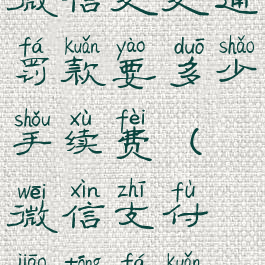 微信 通
fá kuǎn yào duō shǎo
罚款要多少
shǒu xù fèi
手续费(
wēi xìn zhī fù
微信支付
jiāo tōng fá kuǎn